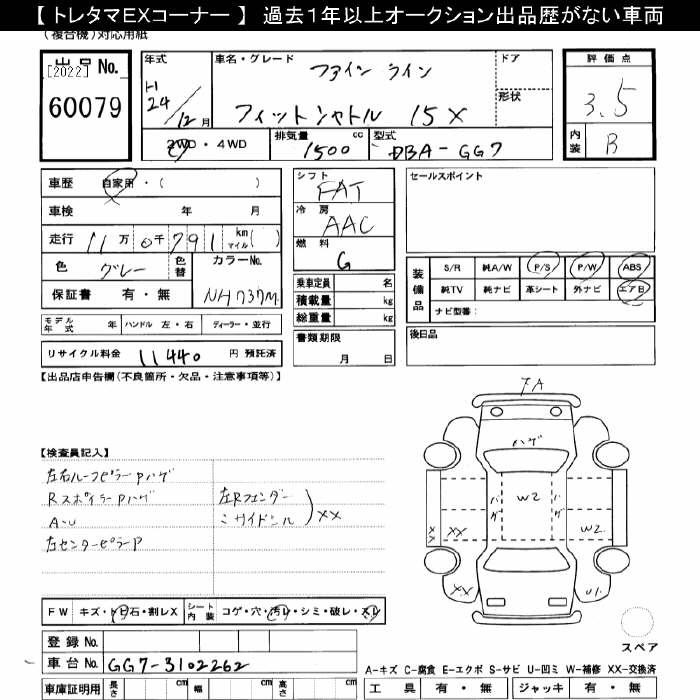 【 トレタマEXコーナー 】 過去1年以上オークション出品歴がない車両
(複合機)対応用紙
出品 No.
[2022]
60079
年式
H
24/12月
車名・グレード
ファイン ライン
フィットシャトル 15X
ドア
形状
評価点
3.5
内装
B
2WD・4WD
排気量 cc
1500
型式
DBA-GG7
車歴 自家用・( )
車検 年 月
走行 11万0千791 km マイル( )
色 グレー 色替
カラーNo.
NH737M
保証書 有・無
シフト
FAT
冷房
AAC
燃料
G
乗車定員 名
積載量 kg
総重量 kg
書類期限
月 日
セールスポイント
装備品
S/R 純A/W P/S P/W ABS
純TV 純ナビ 革シート 外ナビ エアB
ナビ型番:
後日品
モデル年式 年 ハンドル 左・右 ディーラー・並行
リサイクル料金 11440 円 預託済
【出品店申告欄(不良箇所・欠品・注意事項等)】
【検査員記入】
左右ルーフピラーPハゲ
RスポイラーPハゲ
A-U
左センターピラーP
左Rフェンダー
ミサイドシル
XX
FA
ハゲ
W2
ハゲ
ハゲ
XX
XX
W2
XX
U1
スペア
FW キズ・ト石・割レX
シート内装 コゲ・穴・汚レ・シミ・破レ・スレ
登録 No.
車台 No. GG7-3102262
車庫証明用 長さ cm 幅 cm 高さ cm
A-キズ C-腐食 E-エクボ S-サビ U-凹ミ W-補修 XX-交換済
工具 有・無 ジャッキ 有・無